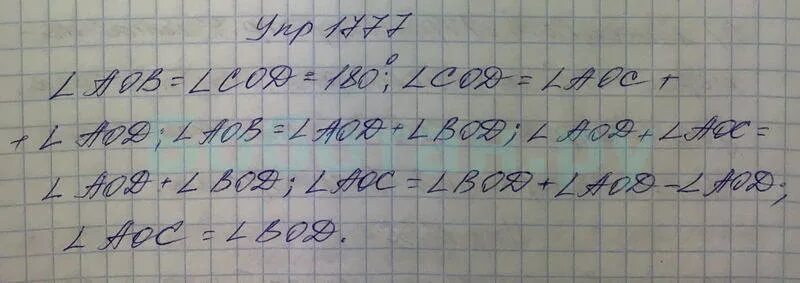 Упр 1777
∠AOB = ∠COD = 180°; ∠COD = ∠AOC +
+ ∠AOD; ∠AOB = ∠AOD + ∠BOD; ∠AOD + ∠AOC =
∠AOD + ∠BOD; ∠AOC = ∠BOD + ∠AOD - ∠AOD;
∠AOC = ∠BOD.